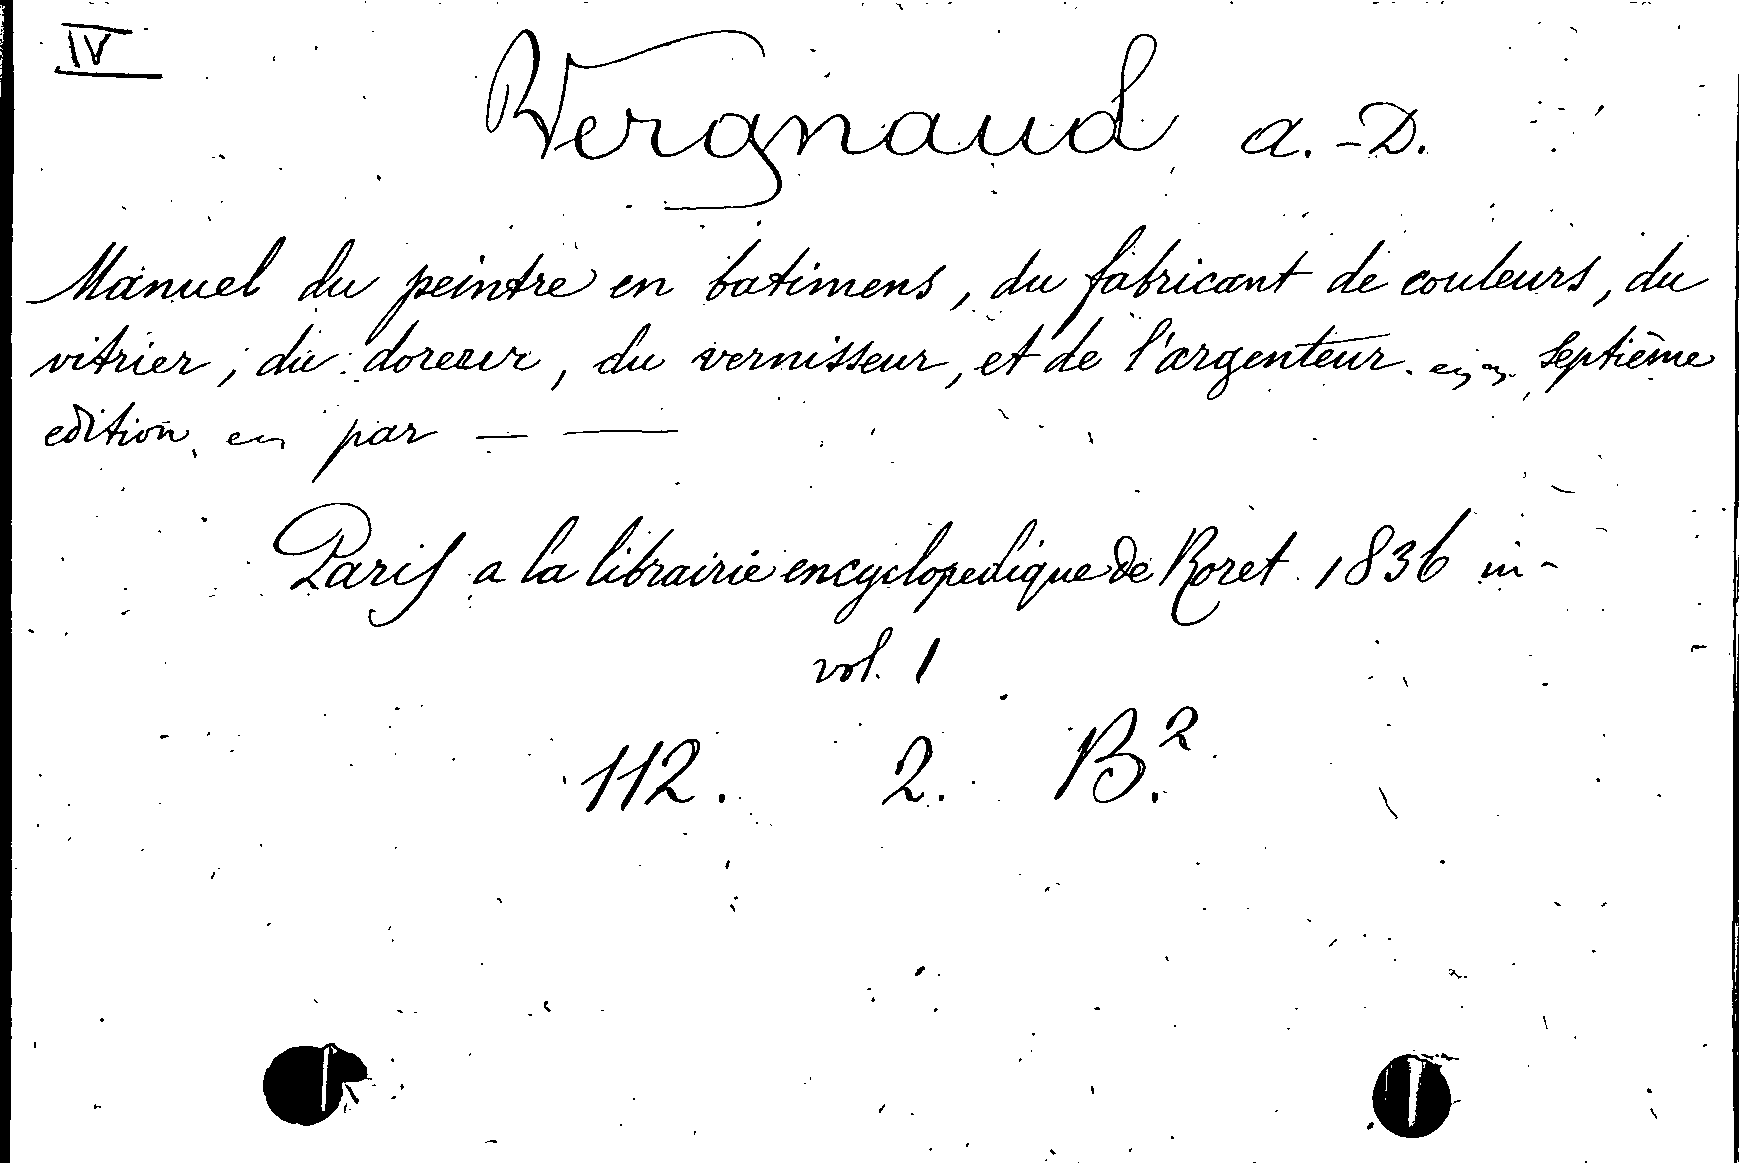 IV
Vergnaud A.-D.
Manuel du peintre en batimens, du fabricant de couleurs, du
vitrier, du doreur, du vernisseur, et de l'argenteur. septième
edition, par — —
Paris a la librairie encyclopedique de Roret 1836 in-
vol. 1
112. 2. B.²